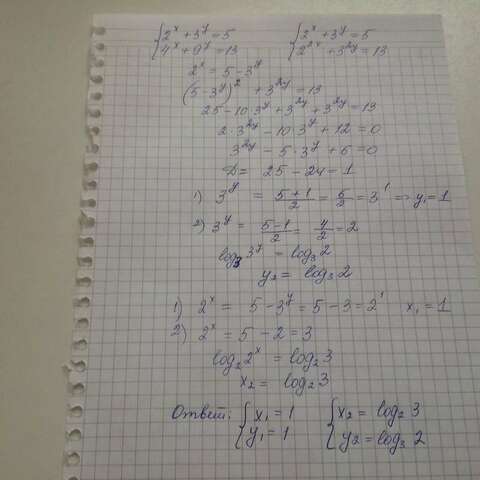 {2^x + 3^y = 5 {2^x + 3^y = 5
{4^x + 9^y = 13 {2^2x + 3^2y = 13
2^x = 5 - 3^y
(5 - 3^y)^2 + 3^2y = 13
25 - 10·3^y + 3^2y + 3^2y = 13
2·3^2y - 10·3^y + 12 = 0
3^2y - 5·3^y + 6 = 0
D = 25 - 24 = 1
1) 3^y = (5+1)/2 = 6/2 = 3^1 => y₁ = 1
2) 3^y = (5-1)/2 = 4/2 = 2
log₃ 3^y = log₃ 2
y₂ = log₃ 2
1) 2^x = 5 - 3^y = 5 - 3 = 2^1 x₁ = 1
2) 2^x = 5 - 2 = 3
log₂ 2^x = log₂ 3
x₂ = log₂ 3
Ответ: {x₁ = 1 {x₂ = log₂ 3
{y₁ = 1 {y₂ = log₃ 2